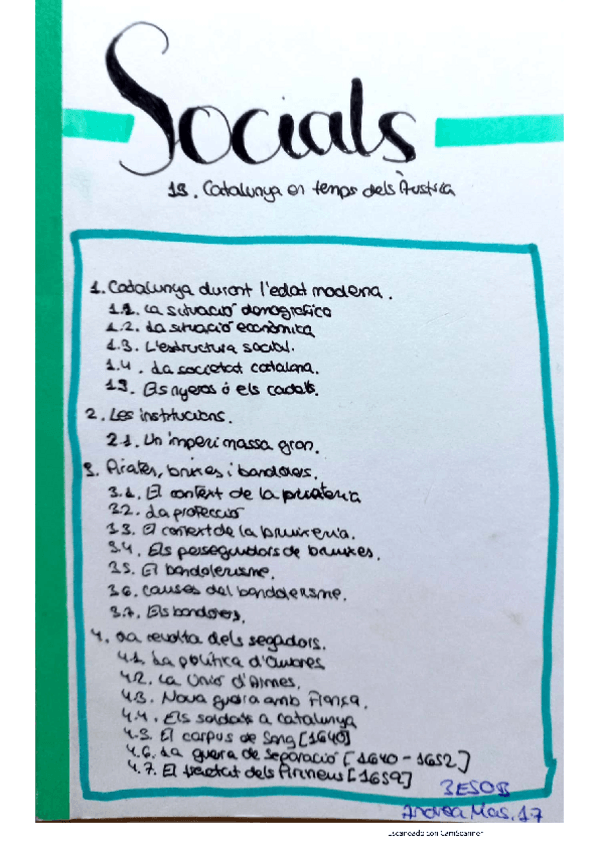 Socials
13. Catalunya en temps dels Àustria
1. Catalunya durant l'edat moderna.
1.1. La situació demografica
1.2. La situació econòmica
1.3. L'estructura social.
1.4. La societat catalana.
1.5. Els nyeros ó els cadells.
2. Les institucions.
2.1. Un imperi massa gran.
3. Pirates, bruixes i bandolers.
3.1. El context de la pirateria
3.2. La protecció
3.3. El context de la bruixeria.
3.4. Els perseguidors de bruixes.
3.5. El bandolerisme.
3.6. Causes del bandolerisme.
3.7. Els bandolers.
4. La revolta dels segadors.
4.1. La política d'Olivares
4.2. La Unió d'Armes.
4.3. Nova guerra amb França.
4.4. Els soldats a Catalunya
4.5. El corpus de Sang [1640]
4.6. La guerra de Separació [1640 - 1652]
4.7. El tractat dels Pirineus [1659]
3ESOB
Andrea Mas. 17
Escaneado con CamScanner